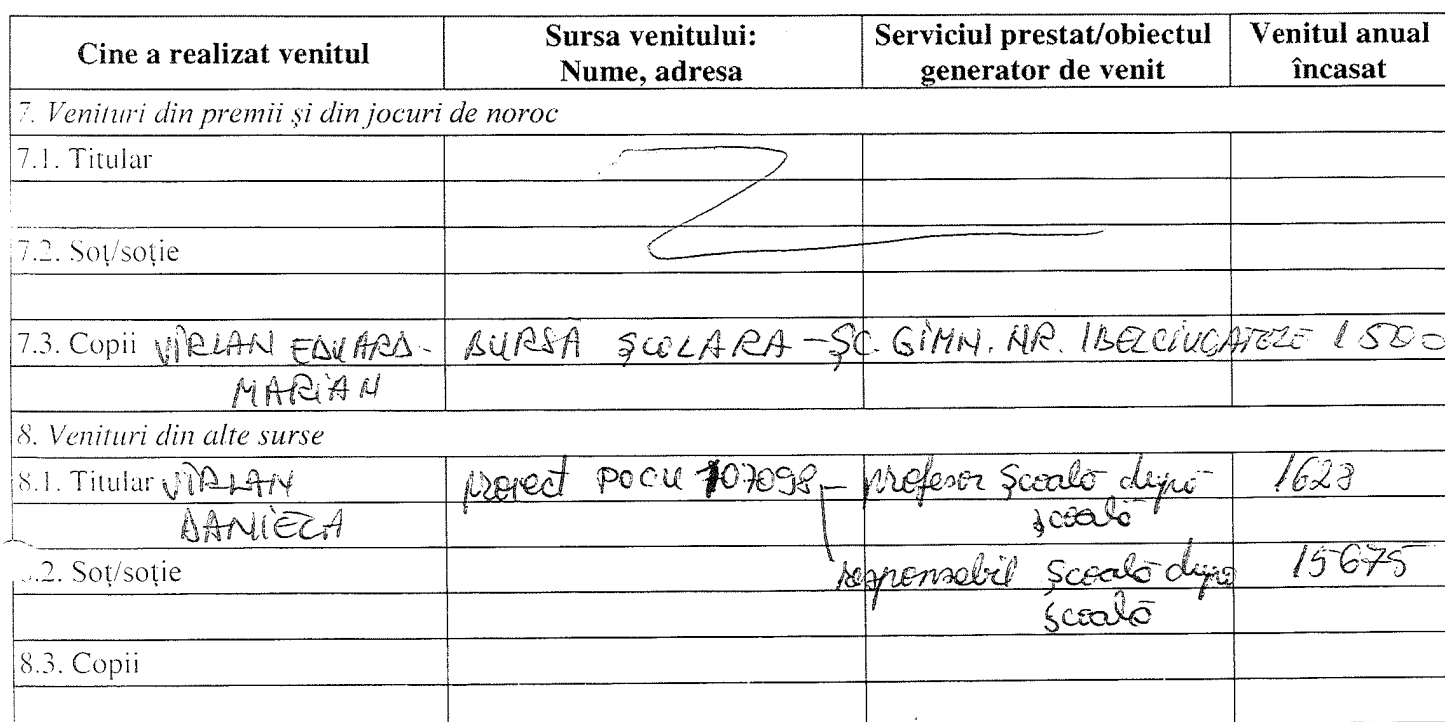 Cine a realizat venitul Sursa venitului: Nume, adresa Serviciul prestat/obiectul generator de venit Venitul anual încasat
7. Venituri din premii și din jocuri de noroc
7.1. Titular
7.2. Soț/soție
7.3. Copii VÎRLAN EDUARD- BURSA ȘCOLARA - ȘC. GIMN. NR. 1 BELCIUGATELE 1500
MARIAN
8. Venituri din alte surse
8.1. Titular VÎRLAN proiect POCU 107098 - profesor Școală după 1623
DANIELA școală
.2. Soț/soție responsabil Școală după 15675
școală
8.3. Copii